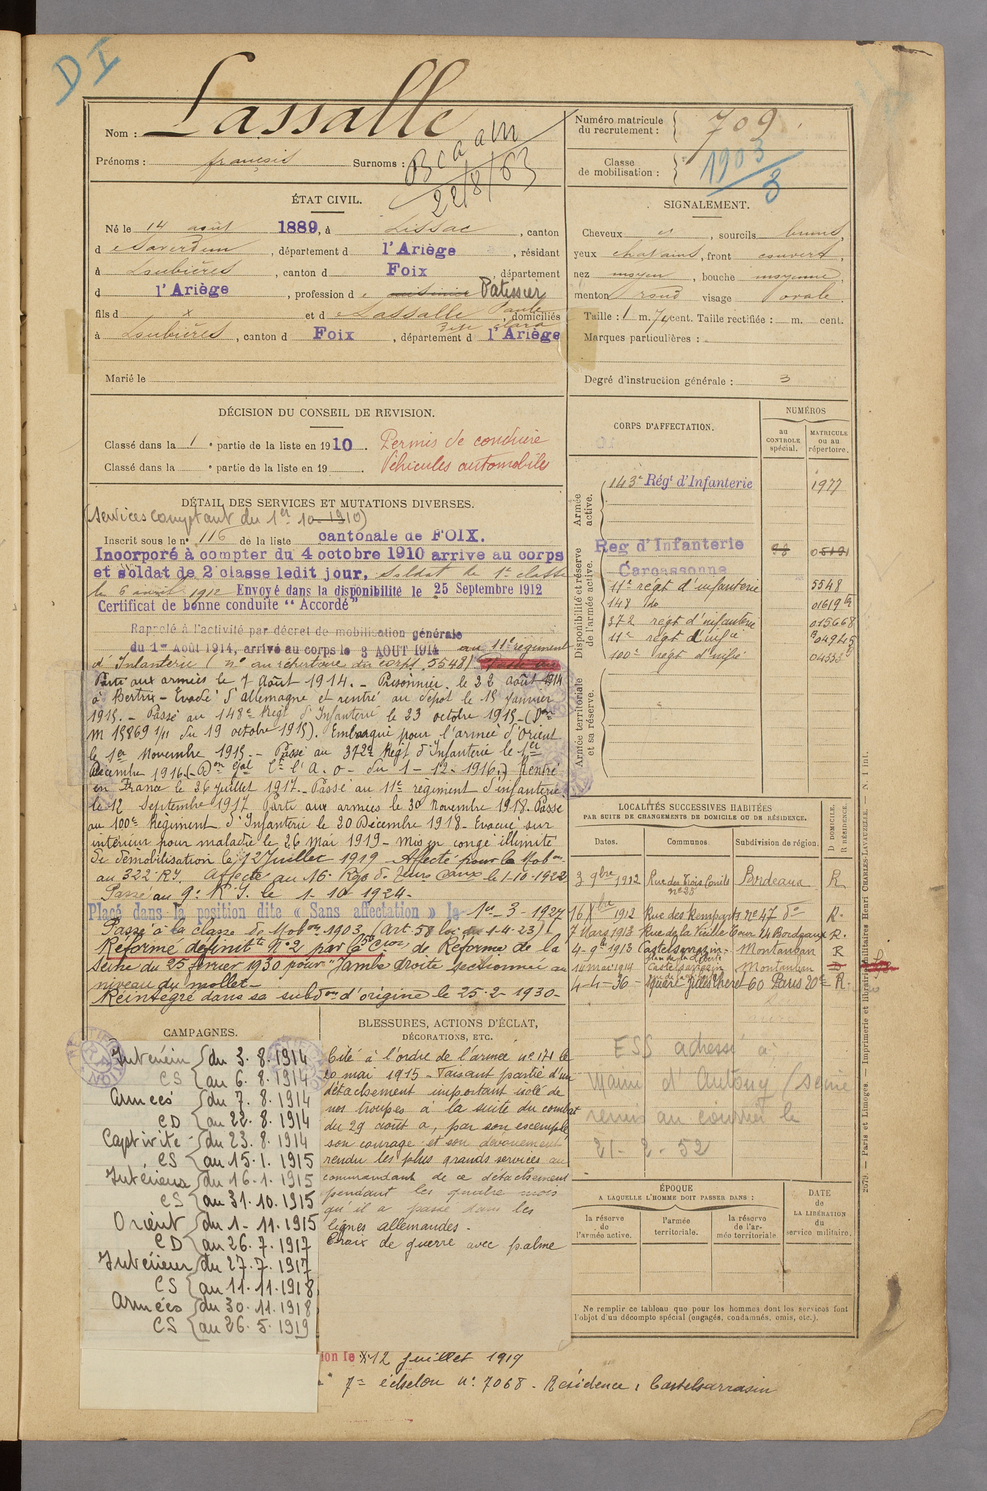 DI
Nom : Lassalle
Prénoms : françois Surnoms :
22/8/63
Numéro matricule du recrutement : 709.
Classe de mobilisation : 1903/3
ÉTAT CIVIL.
Né le 14 août 1889, à Lissac, canton
d Saverdun, département d l'Ariège, résidant
à Loubières, canton d Foix, département
d l'Ariège, profession d Patissier
fils d x et d Lassalle Paule, domiciliés
à Loubières, canton d Foix, département d l'Ariège
Marié le
SIGNALEMENT.
Cheveux et, sourcils bruns,
yeux chatains, front couvert,
nez moyen, bouche moyenne,
menton rond visage ovale.
Taille : 1 m. 74 cent. Taille rectifiée : m. cent.
Marques particulières :
Degré d'instruction générale : 3
DÉCISION DU CONSEIL DE REVISION.
Classé dans la 1 partie de la liste en 1910. Permis de conduire
Classé dans la partie de la liste en 19 . Véhicules automobiles
DÉTAIL DES SERVICES ET MUTATIONS DIVERSES.
(Services comptant du 1er 10-1910)
Inscrit sous le n° 116 de la liste cantonale de FOIX.
Incorporé à compter du 4 octobre 1910 arrive au corps
et soldat de 2 classe ledit jour. Soldat de 1e classe
le 6 avril 1912 Envoyé dans la disponibilité le 25 Septembre 1912
Certificat de bonne conduite "Accordé"
Rappelé à l'activité par décret de mobilisation générale
du 1er Août 1914, arrivé au corps le 3 AOUT 1914 au 11e régiment
d'Infanterie (n° au répertoire du corps 5548)
Parti aux armées le 7 Août 1914. - Prisonnier le 22 août 1914
à Bertrix - Evadé d'allemagne et rentré au dépot le 15 Janvier
1915. - Passé au 148e Régt d'Infanterie le 23 octobre 1915 - (Don
M 15869 1/11 du 19 octobre 1915). Embarqué pour l'armée d'Orient
le 1er Novembre 1915. - Passé au 372e Régt d'Infanterie le 1er
Décembre 1916. (Don Gal Ct l'A. O- du 1-12-1916.) Rentré
en France le 26 Juillet 1917. - Passé au 11e régiment d'infanterie
le 12 Septembre 1917 Parti aux armées le 30 Novembre 1918. Passé
au 100e Régiment d'Infanterie le 30 Décembre 1918 - Evacué sur
intérieur pour maladie le 26 Mai 1919 - Mis en congé illimité
de démobilisation le 12 Juillet 1919 - Affecté pour la Mobon
au 322 R.I. Affecté au 16e Rég de le 1-10-1922
Passé au 9e R.I. le 1-10-1924 -
Placé dans la position dite « Sans affectation » le 1er-3-1927
Passé à la classe de Mobon 1903 (Art 58 loi du 1-4-23)
Réformé définitt N°2 par la Cion de Réforme de la
Seine du 25 février 1930 pour "Jambe droite sectionnée au
niveau du mollet -
Réintégré dans sa subdon d'origine le 25-2-1930-
CORPS D'AFFECTATION.
NUMÉROS
au CONTROLE spécial.
MATRICULE ou au répertoire.
Armée active.
143e Régt d'Infanterie 1977
Disponibilité et réserve de l'armée active.
Reg d'Infanterie
Carcassonne
11e régt d'infanterie 5548
148 do 01619
372 régt d'infanterie 015668
11e régt d'infie 04945
100e régt d'infie
Armée territoriale et sa réserve.
LOCALITÉS SUCCESSIVES HABITÉES
PAR SUITE DE CHANGEMENTS DE DOMICILE OU DE RÉSIDENCE.
Dates. Communes. Subdivision de région. D. DOMICILE. R. RÉSIDENCE.
3 9bre 1912 Rue des Trois Conils n° 28 Bordeaux R
16 Xbre 1912 Rue des Remparts n° 47 do R.
7 Mars 1913 Rue de la Vieille Tour 24 Bordeaux R.
4-9-1913 Castelsarrazin - Montauban R
14 mai 1914 Castelsarrazin Montauban
4-4-36 - 60 Paris 20e R.
ESS adressé à
Mairie d'Antony / Seine
remis au courrier le
21-2-52
CAMPAGNES.
Intérieur du 3.8.1914
CS au 6.8.1914
Armées du 7.8.1914
CD au 22.8.1914
Captivité du 23.8.1914
CS au 15.1.1915
Intérieur du 16.1.1915
CS au 31.10.1915
Orient du 1.11.1915
CD au 26.7.1917
Intérieur du 27.7.1917
CS au 11.11.1918
Armées du 30.11.1918
CS au 26.5.1919
BLESSURES, ACTIONS D'ÉCLAT,
DÉCORATIONS, ETC.
Cité à l'ordre de l'armée n° 171 le
20 mai 1915 - Faisant partie d'un
détachement important isolé de
nos troupes à la suite du combat
du 29 août a, par son exemple,
son courage et son dévouement
rendu les plus grands services au
commandant de ce détachement
pendant les quatre mois
qu'il a passé dans les
lignes allemandes.
Croix de guerre avec palme
ÉPOQUE
A LAQUELLE L'HOMME DOIT PASSER DANS :
la réserve de l'armée active.
l'armée territoriale.
la réserve de l'armée territoriale
DATE de LA LIBÉRATION du service militaire.
Ne remplir ce tableau que pour les hommes dont les services font
l'objet d'un décompte spécial (engagés, condamnés, omis, etc.).
ion le 12 juillet 1919
7e échelon n° 7068 - Résidence : Castelsarrasin
2979. — Paris et Limoges. — Imprimerie et librairie militaires Henri CHARLES-LAVAUZELLE. — N. 1 int.